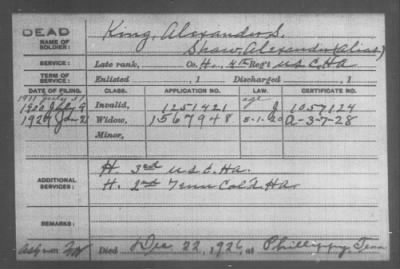 DEAD
NAME OF SOLDIER: King, Alexander S.
Shaw, Alexander (Alias)
SERVICE: Late rank, Co. H., 4th Reg't U.S.C.H.A
TERM OF SERVICE: Enlisted , 1 Discharged , 1
DATE OF FILING. CLASS. APPLICATION NO. LAW. CERTIFICATE NO.
1911 July 31 Invalid, 1251421 age J 1057124
1927 Jan-21 Widow, 1567948 5-1-20 A-3-7-28
Minor,
ADDITIONAL SERVICES:
H. 3rd U.S.C.Ha.
H. 2nd Tenn Cold. Ha.
REMARKS:
Died Dec 22, 1926, at Phillippy, Tenn